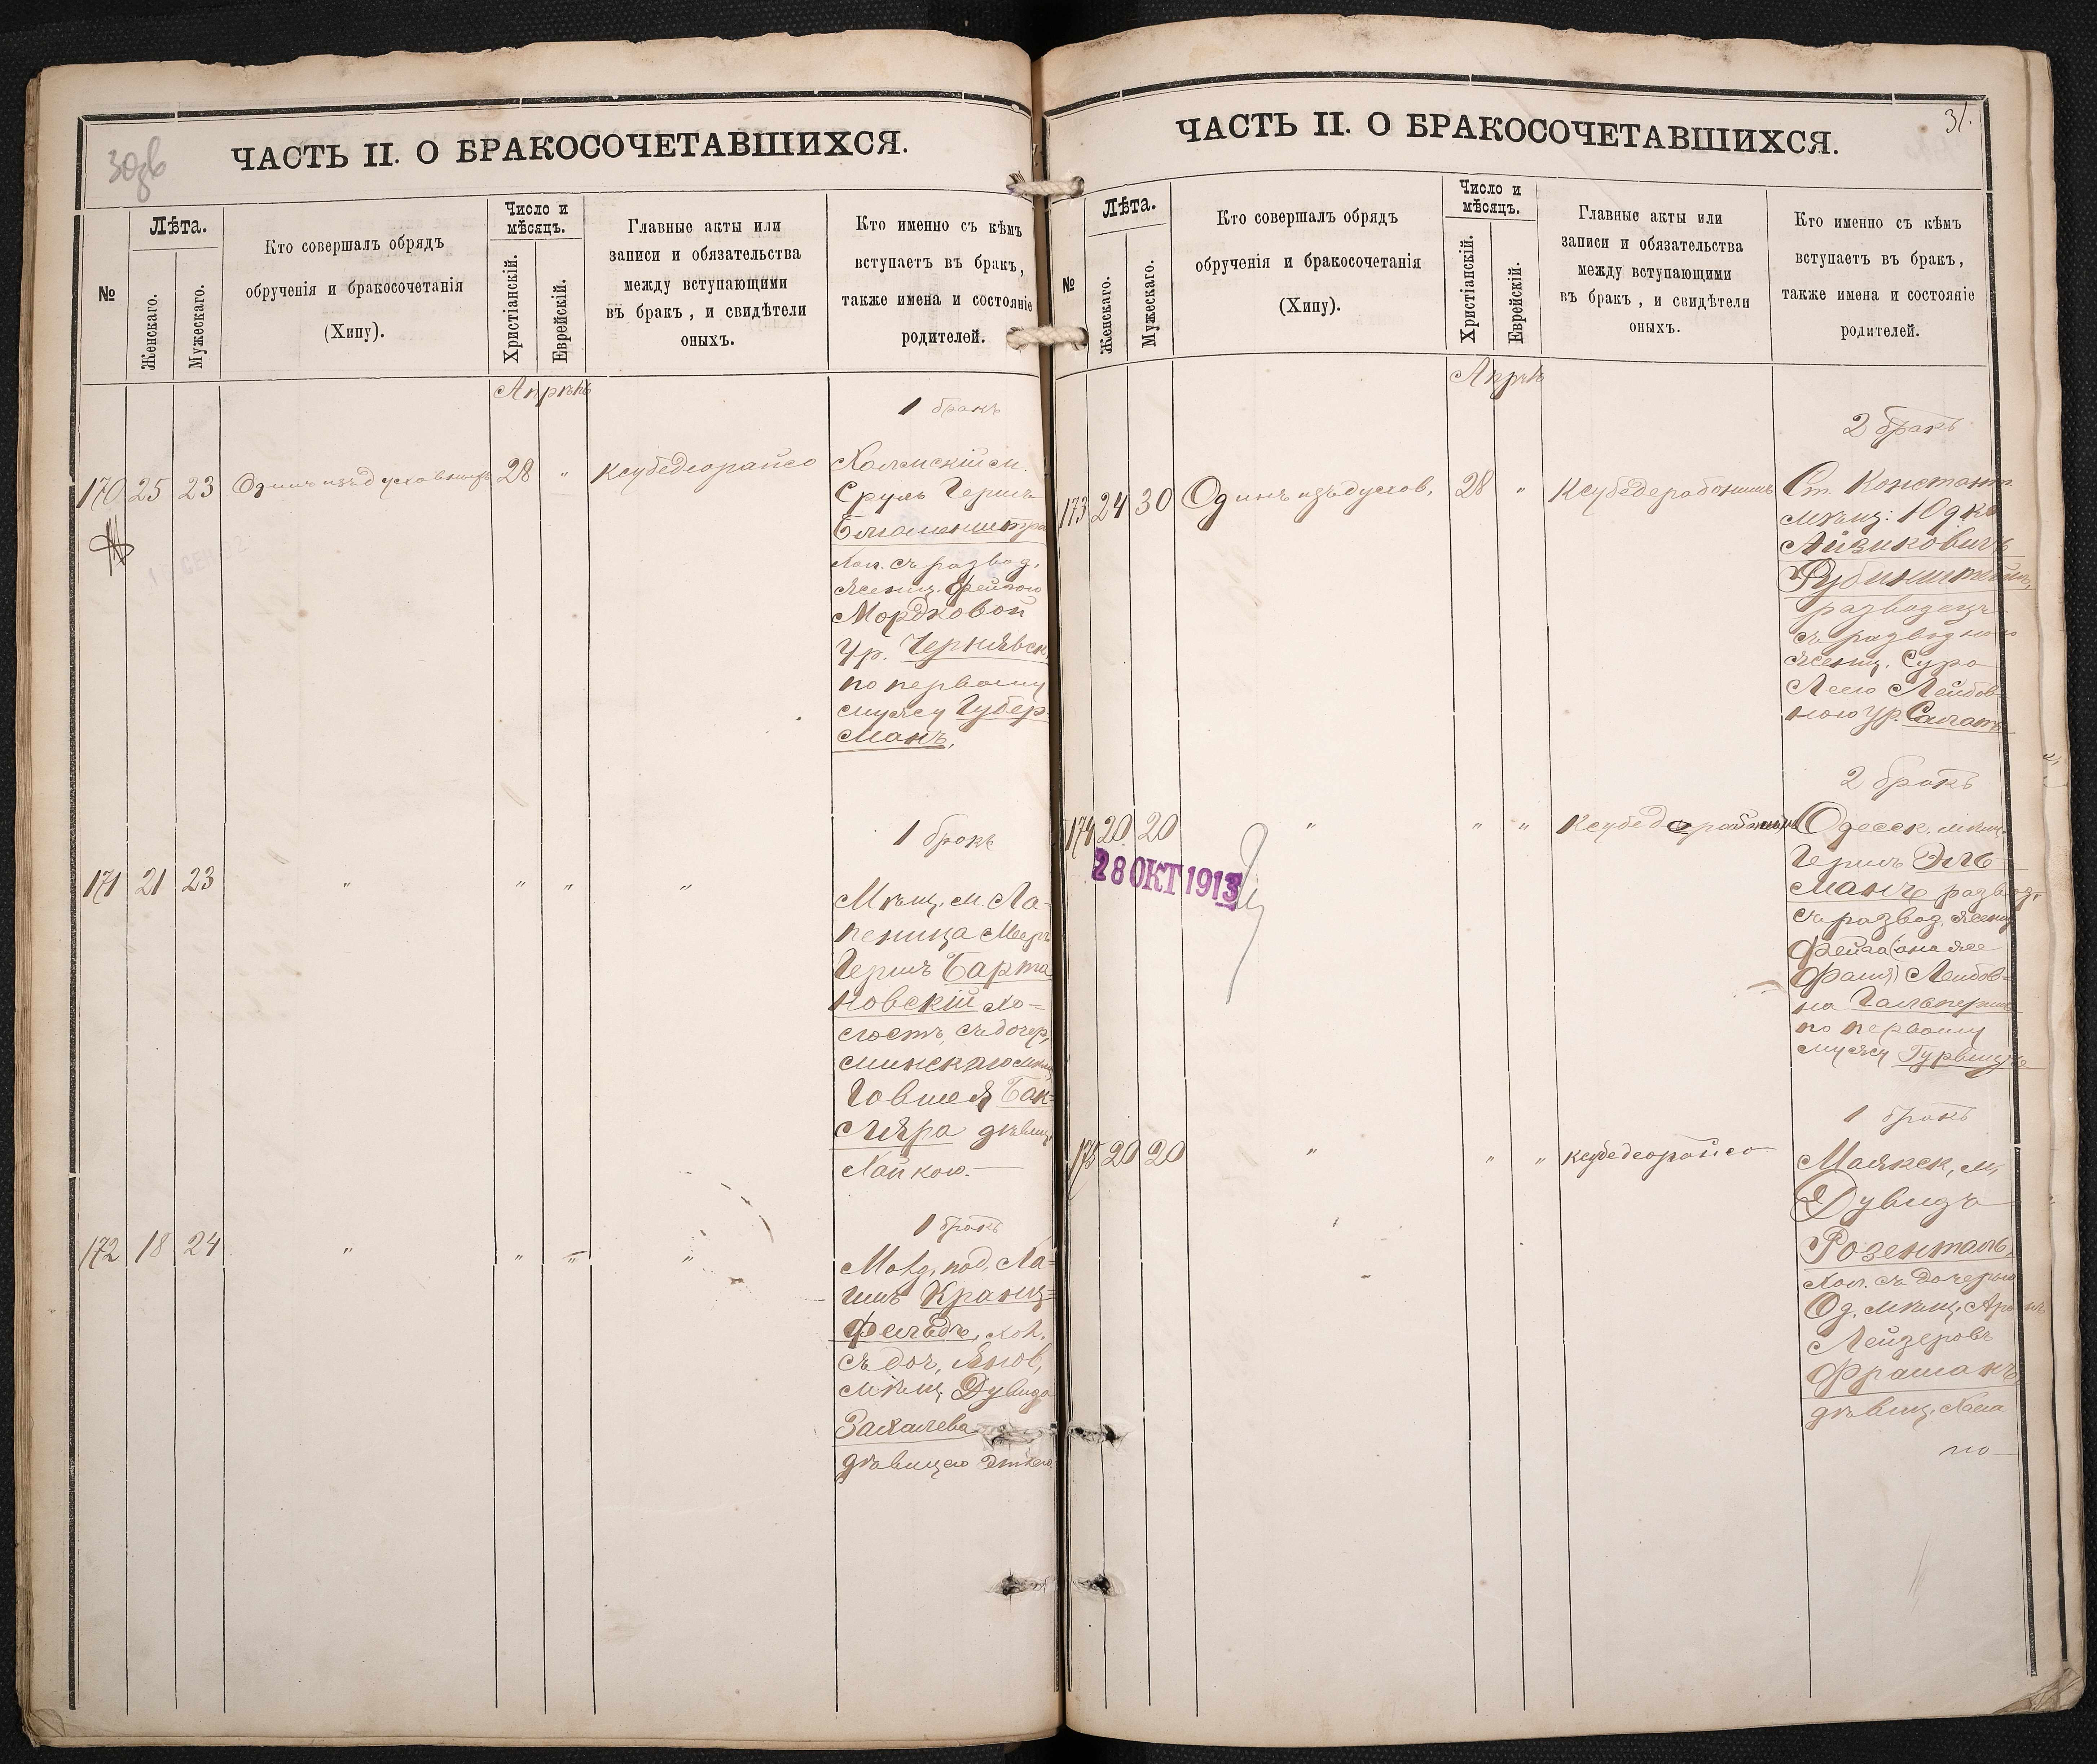 ЧАСТЬ II. О БРАКОСОЧЕТАВШИХСЯ.
№
Лѣта.
Женскаго.
Мужескаго.
Кто совершалъ обрядъ
обрученія и бракосочетанія
(Хипу).
Число и
мѣсяцъ.
Христіанскій.
Еврейскій.
Главные акты или
записи и обязательства
между вступающими
въ бракъ, и свидѣтели
оныхъ.
Кто именно съ кѣмъ
вступаетъ въ бракъ,
также имена и состояніе
родителей.
Апрѣль
1 бракъ
170 25 23 Одинъ изъ духовныхъ 28 " Ксубедеорайсо
Сруль Гершъ
съ развод.
женщ. Фейгою
Мордковой
Ур. Чернявск.
по первому
мужу Губер-
манъ.
1 бракъ
171 21 23 " " " "
Мѣщ. м. Ла-
пеница Меер
Гершъ Барта
новскій хо-
лостъ, съ дочер.
минскаго мѣщ.
Говшея Бак-
сляра дѣвиц.
Хайкою.
1 бракъ
172 18 24 " " " "
Молд. под. Ха-
имъ Кранц-
фельдъ, хол.
съ доч. Янов.
мѣщ. Дувида
дѣвицею Эткею
ЧАСТЬ II. О БРАКОСОЧЕТАВШИХСЯ.
31.
№
Лѣта.
Женскаго.
Мужескаго.
Кто совершалъ обрядъ
обрученія и бракосочетанія
(Хипу).
Число и
мѣсяцъ.
Христіанскій.
Еврейскій.
Главные акты или
записи и обязательства
между вступающими
въ бракъ, и свидѣтели
оныхъ.
Кто именно съ кѣмъ
вступаетъ въ бракъ,
также имена и состояніе
родителей.
Апрѣль
2 бракъ
173 24 30 Одинъ изъ духов. 28 " Ксубедерабонимъ
Ст. Констант.
мѣщ: Юдко
Айзиковичъ
Рубинштейнъ
разводецъ
съ разводною
женщ. Сура
Леею Лейбов-
ною ур. Салатъ
2 бракъ
174 20 20 " " " Ксубедерабонимъ
28 ОКТ 1913
Одесск. мѣщ.
Гершъ Эль-
манъ развод.
съ развод. женщ.
Фейга (она же
Фаня) Лейбов-
на Гальперинъ
по первому
мужу Гурвицъ
1 бракъ
175 20 20 " " " Ксубедеорайсо
Маякск. м.
Дувидъ
Розенталь,
хол. съ дочерью
Од. мѣщ. Аронъ
Лейзеровъ
дѣвиц. Хана